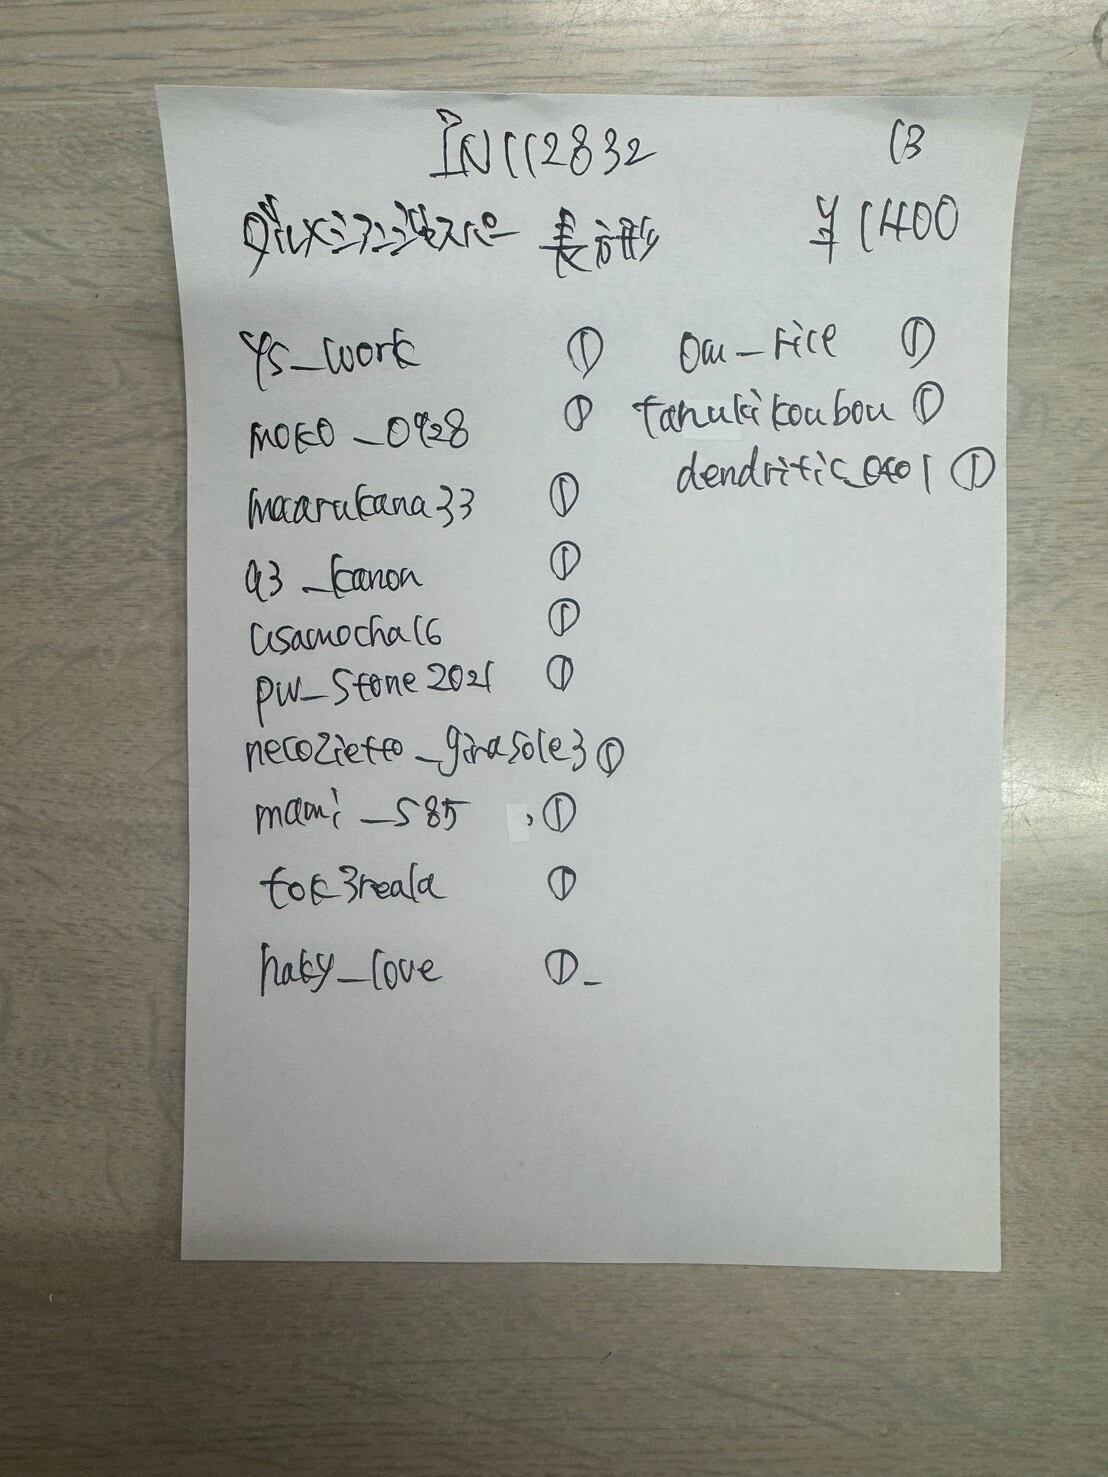 IN112832 13
ダルメシアンジャスパー 長方形 ¥1400
ys_work ①
moko_0928 ①
maarukana33 ①
a3_kanon ①
usamocha16 ①
pw_stone2021 ①
necozietto_girasole3 ①
mami_s85 ①
tok3reala ①
haky_love ①
ou_rice ①
tanukikoubou ①
①